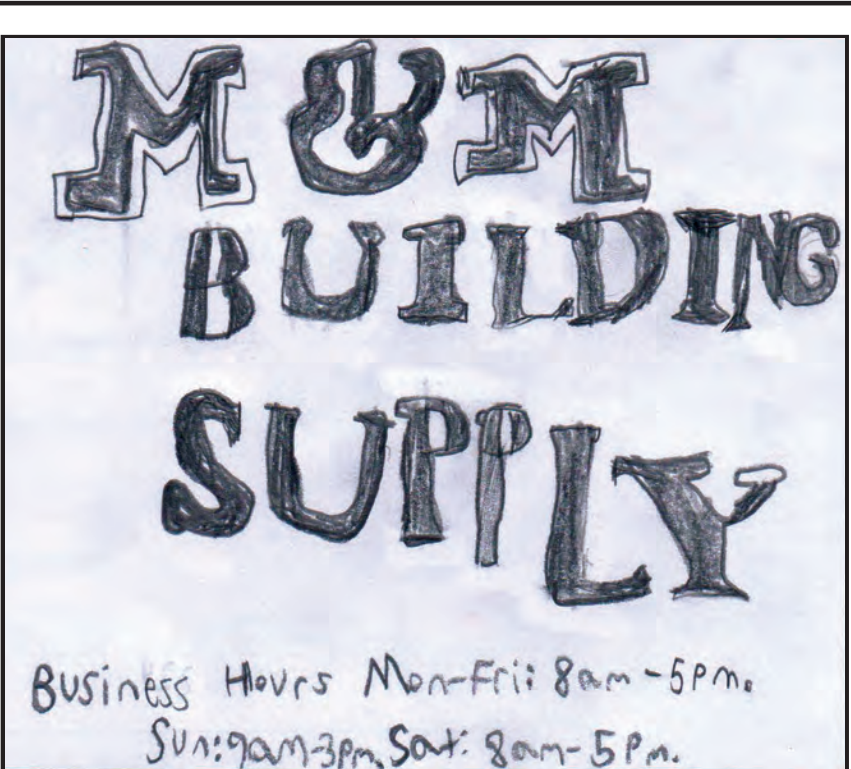 M & M
BUILDING
SUPPLY
Business Hours Mon-Fri: 8am-5pm.
Sun: 9am-3pm, Sat: 8am-5pm.